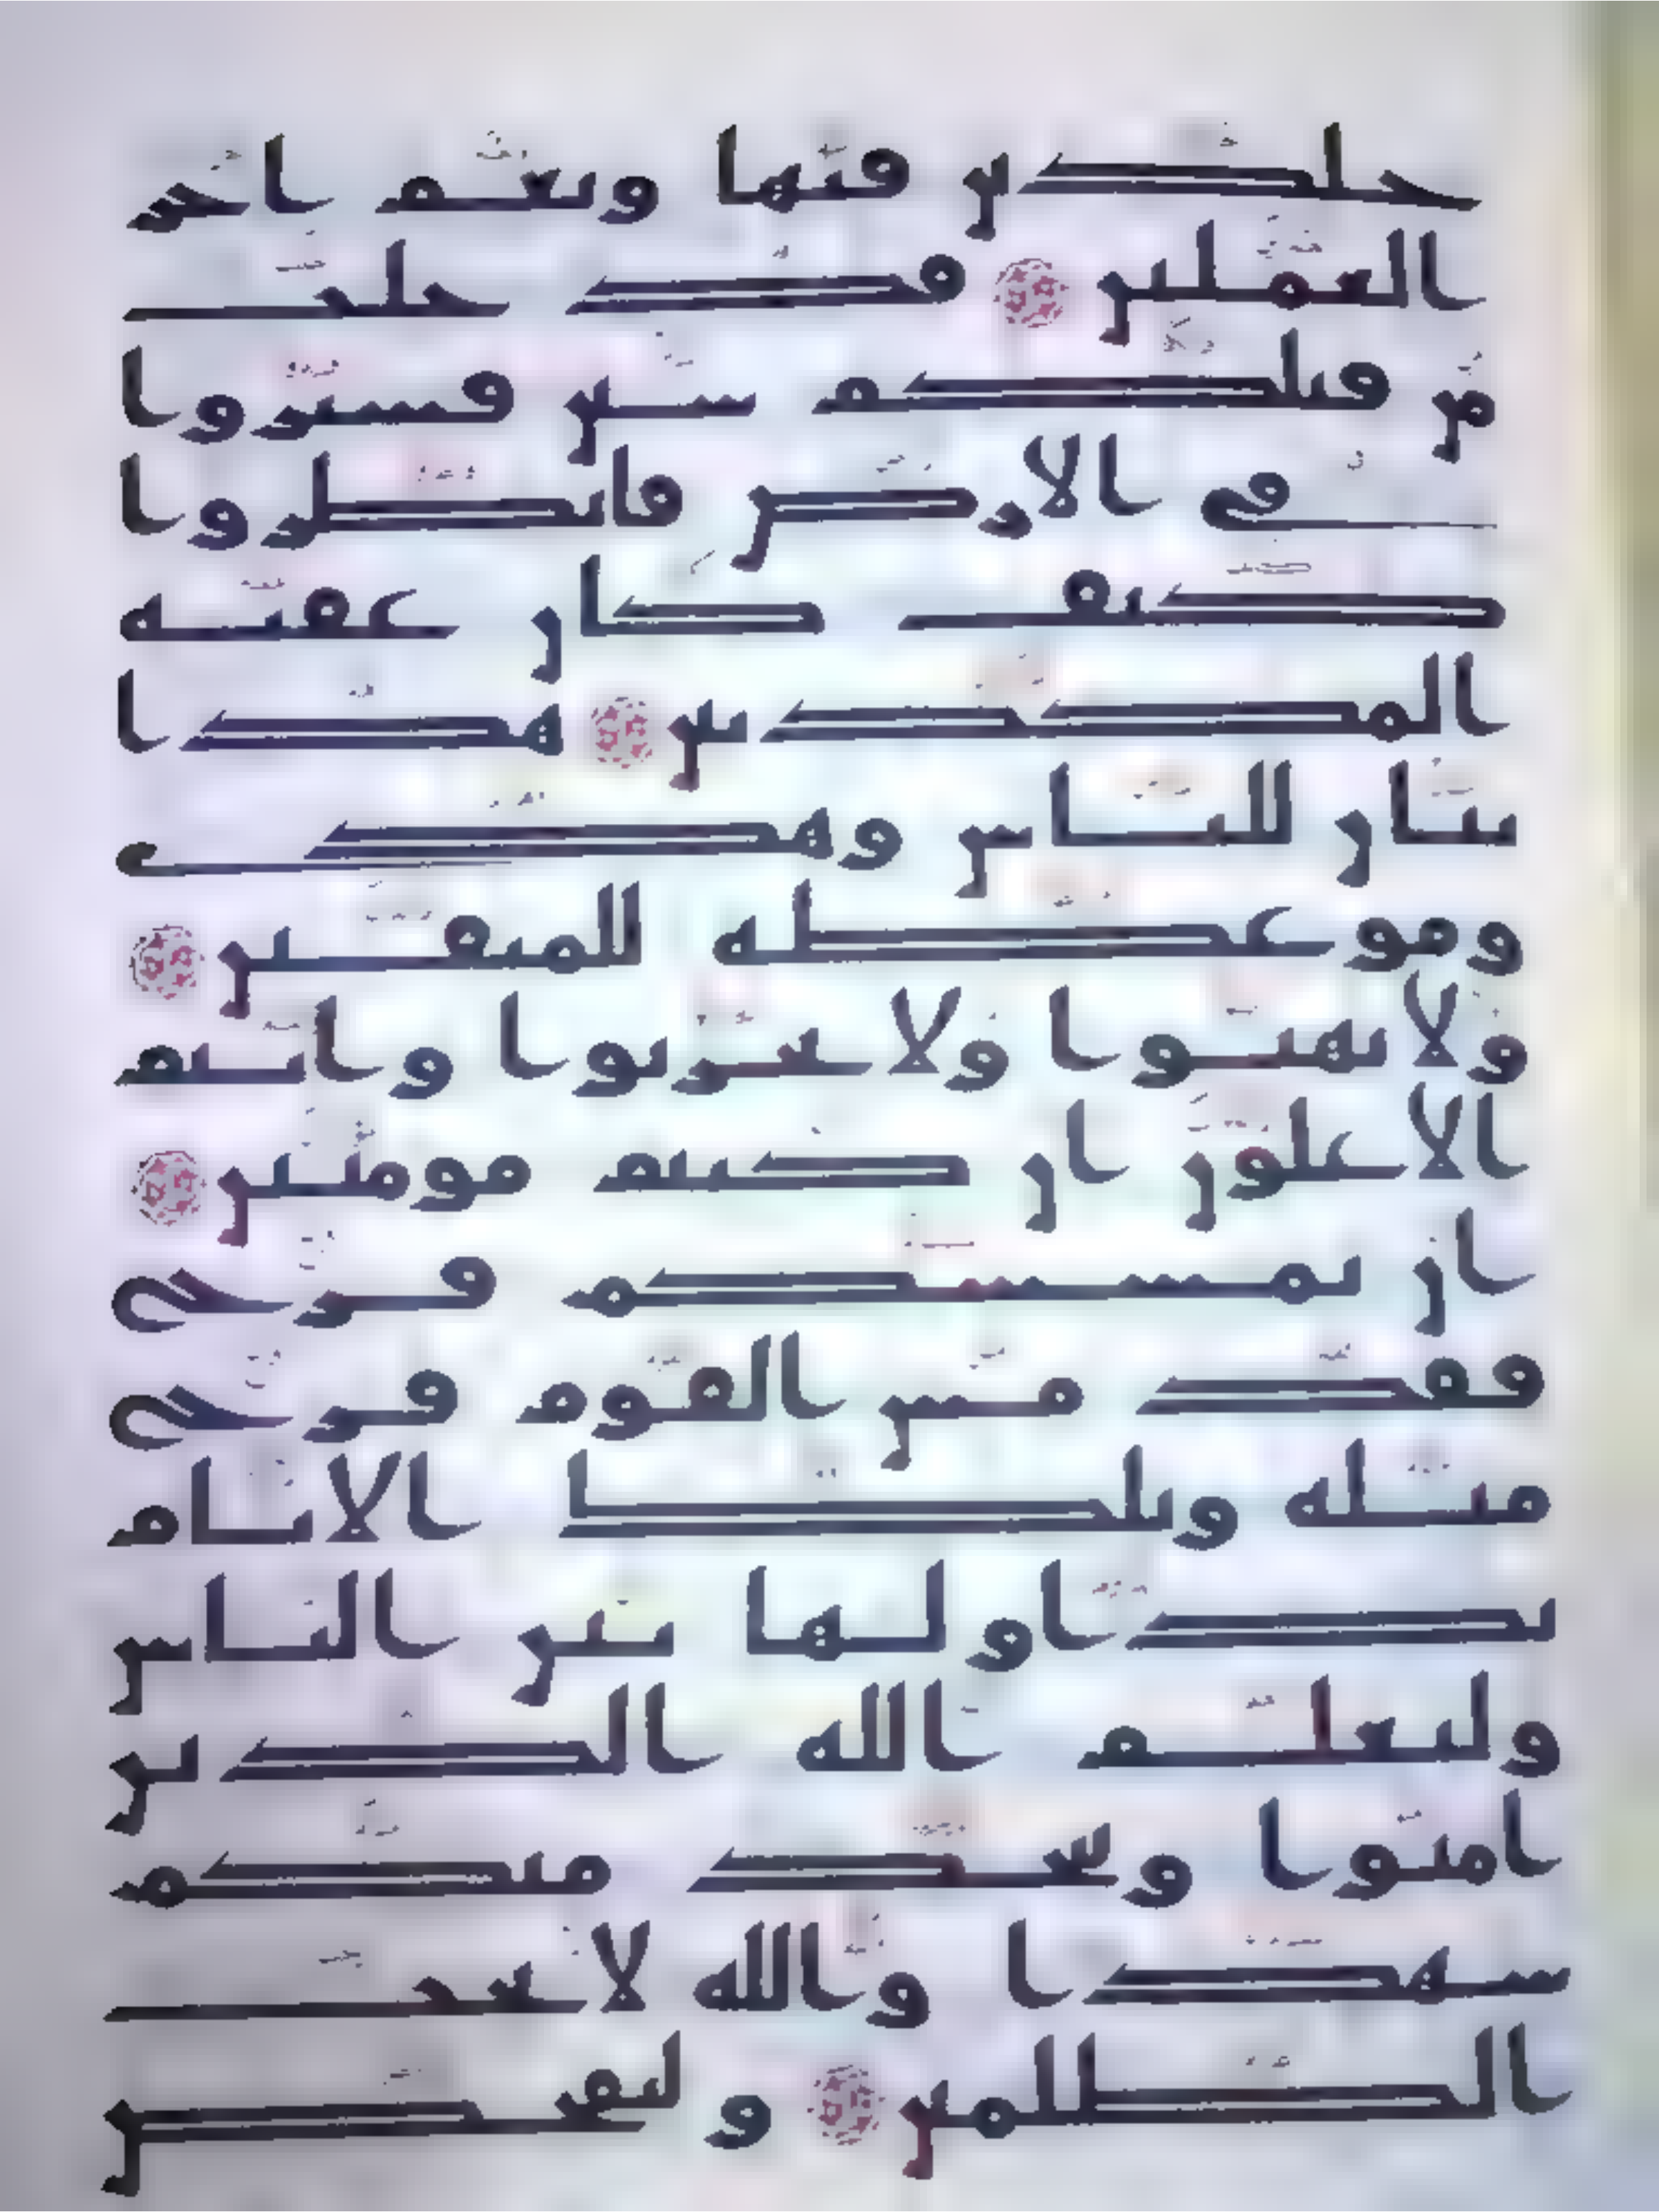 خلدين فيها ونعم اجر
العملين قد خلت
من قبلكم سنن فسيروا
في الارض فانظروا
كيف كان عقبة
المكذبين هذا
بيان للناس وهدى
وموعظة للمتقين
ولا تهنوا ولا تحزنوا وانتم
الاعلون ان كنتم مومنين
ان يمسسكم قرح
فقد مس القوم قرح
مثله وتلك الايام
نداولها بين الناس
وليعلم الله الذين
امنوا ويتخذ منكم
شهدا والله لا يحب
الظلمين وليمحص